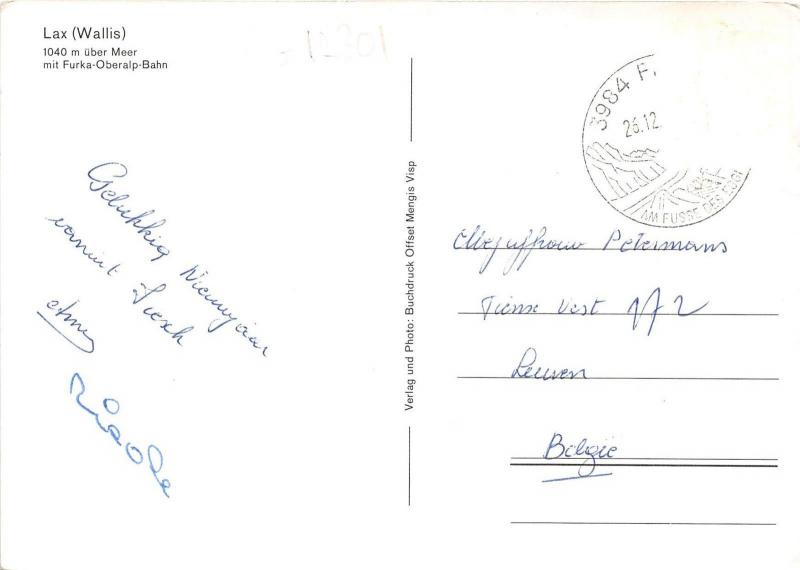 Lax (Wallis)
1040 m über Meer
mit Furka-Oberalp-Bahn
12301
3984 F
26.12
AM FUSSE DES EGGI
Gelukkig Nieuwjaar
vanuit Fiesch
Verlag und Photo: Buchdruck Offset Mengis Visp
Mejuffrouw Petermans
Tiense Vest
Leuven
België